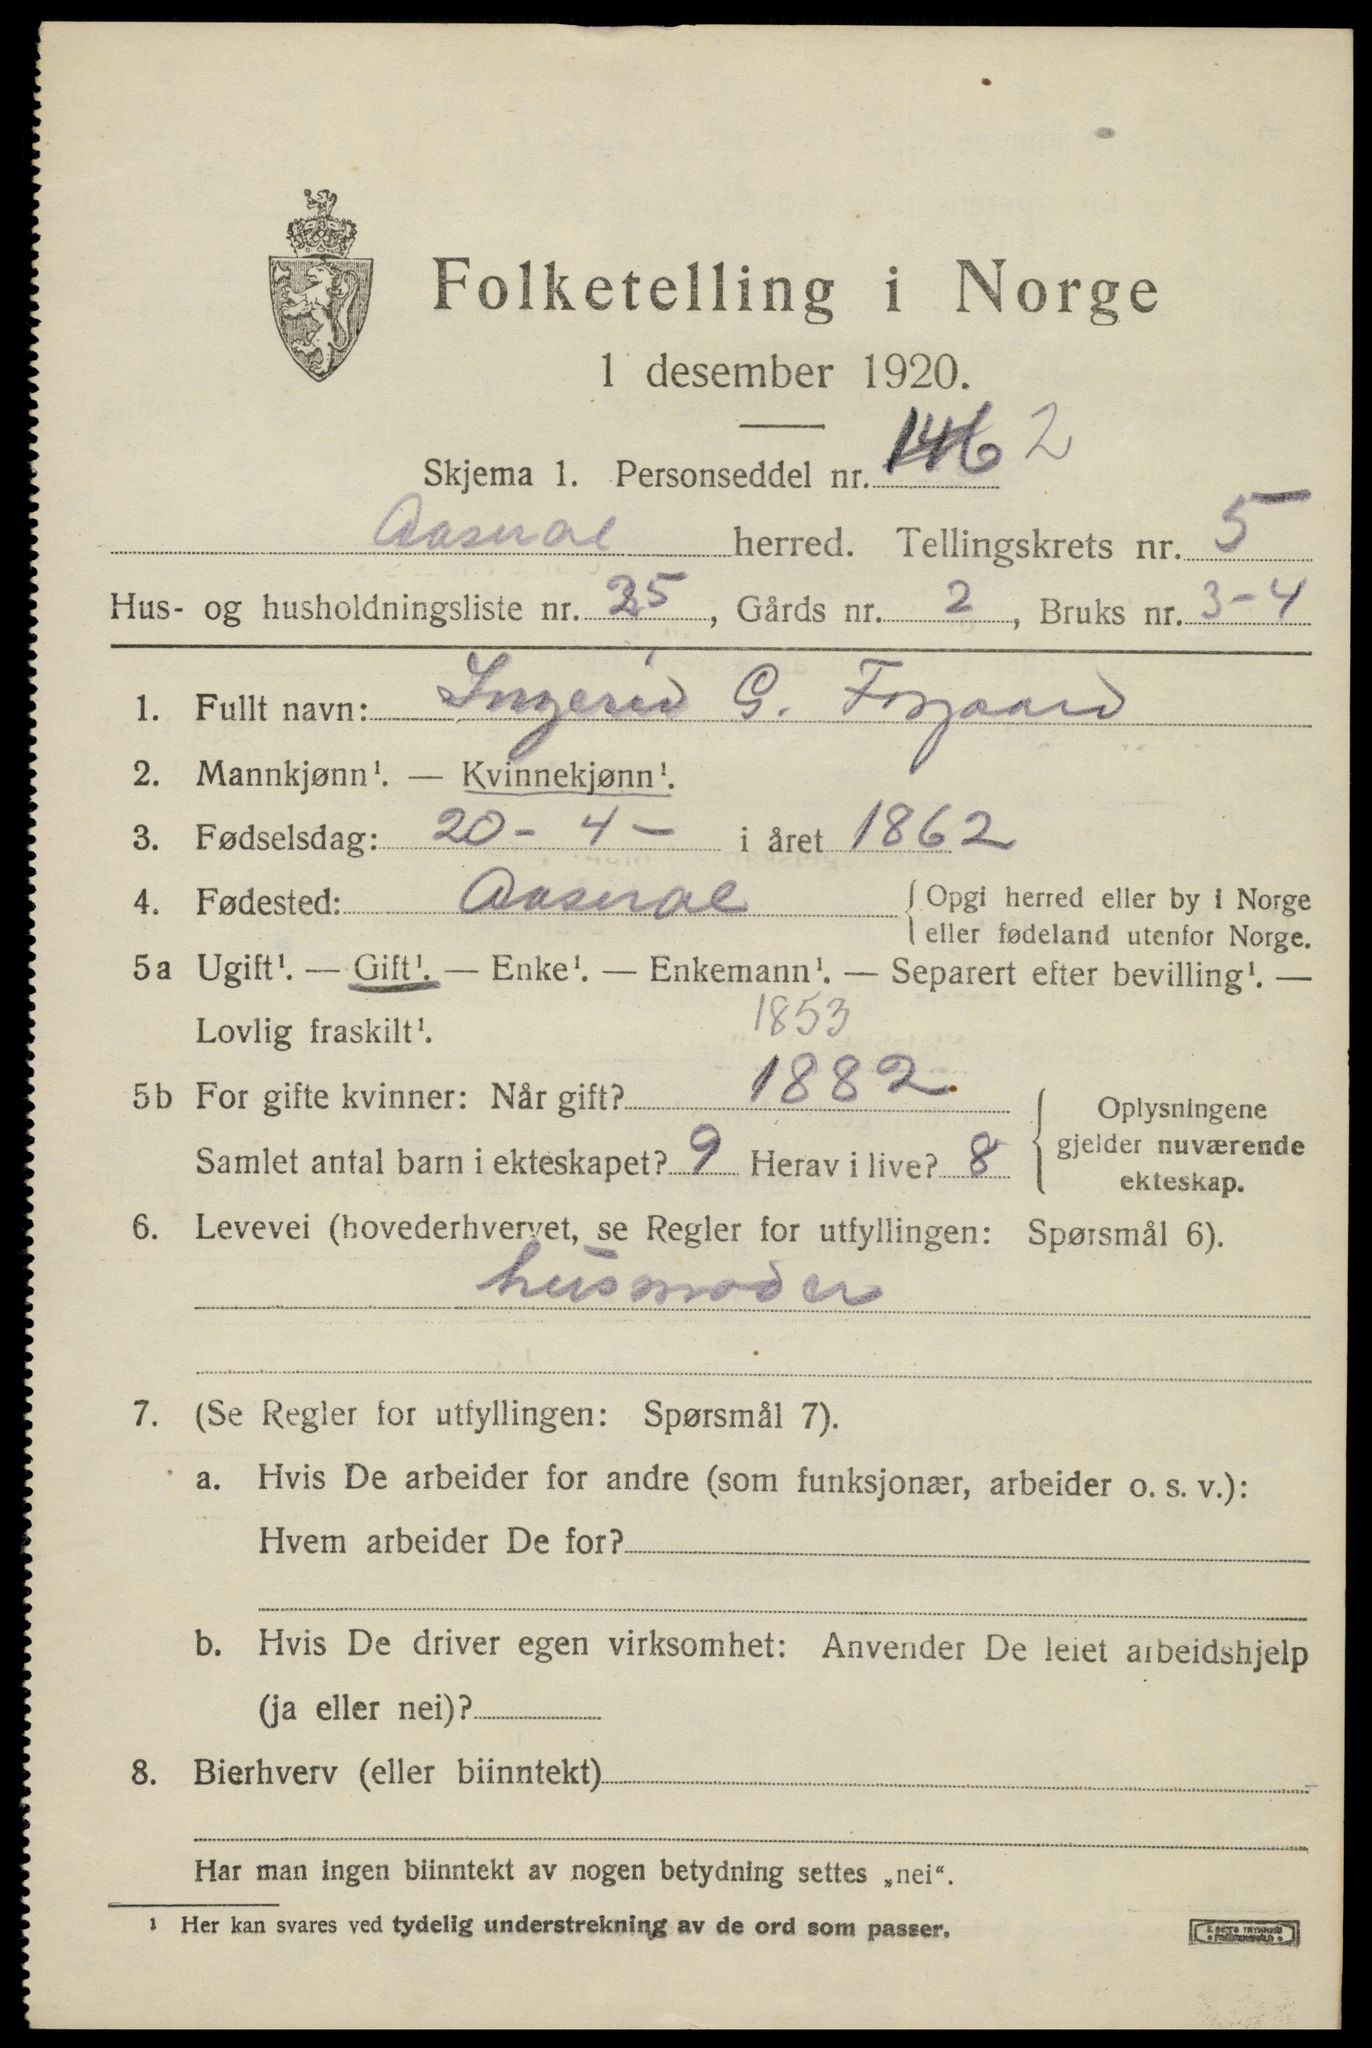 Folketelling i Norge
1 desember 1920.
Skjema 1. Personseddel nr. 146 2
Aaseral herred. Tellingskrets nr. 5
Hus- og husholdningsliste nr. 25, Gårds nr. 2, Bruks nr. 3-4
1. Fullt navn: Ingerid G. Fosgaard
2. Mannkjønn¹. — Kvinnekjønn¹.
3. Fødselsdag: 20 - 4 - i året 1862
4. Fødested: Aaseral { Opgi herred eller by i Norge
eller fødeland utenfor Norge.
5a Ugift¹. — Gift¹. — Enke¹. — Enkemann¹. — Separert efter bevilling¹. —
Lovlig fraskilt¹.
1853
5b For gifte kvinner: Når gift? 1882.
Samlet antal barn i ekteskapet? 9 Herav i live? 8
Oplysningene
gjelder nuværende
ekteskap.
6. Levevei (hovederhvervet, se Regler for utfyllingen: Spørsmål 6).
husmoder
7. (Se Regler for utfyllingen: Spørsmål 7).
a. Hvis De arbeider for andre (som funksjonær, arbeider o. s. v.):
Hvem arbeider De for?
b. Hvis De driver egen virksomhet: Anvender De leiet arbeidshjelp
(ja eller nei)?
8. Bierhverv (eller biinntekt)
Har man ingen biinntekt av nogen betydning settes „nei“.
¹ Her kan svares ved tydelig understrekning av de ord som passer.